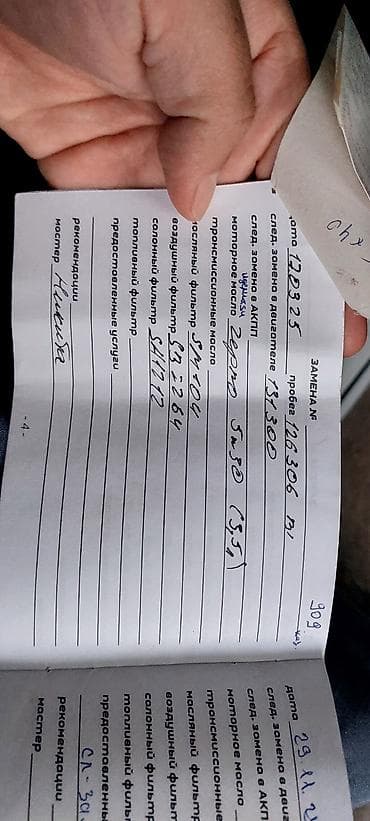 ЗАМЕНА №
дата 120325 пробег 126306
след. замена в двигателе 131300
след. замена в АКПП
моторное масло 5w30 (3,5л)
трансмиссионные масла
масляный фильтр
воздушный фильтр SA-264
салонный фильтр SA1212
топливный фильтр
предоставленные услуги
рекомендации
мастер Никита
-4-
909
дата 29.11.2
след. замена в двига
след. замена в АКП
моторное масло
трансмиссионные
масляный фильтр
воздушный фильт
салонный фильтр
топливный филь
предоставленны
рекомендации
мастер